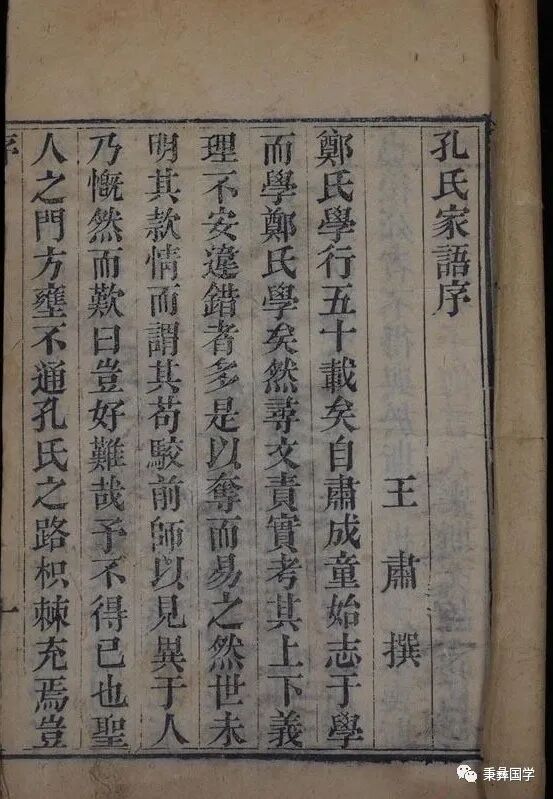 孔氏家語序
王肅撰
鄭氏學行五十載矣自肅成童始志于學
而學鄭氏學矣然尋文責實考其上下義
理不安違錯者多是以奪而易之然世未
明其款情而謂其苟駮前師以見異于人
乃慨然而歎曰豈好難哉予不得已也聖
人之門方壅不通孔氏之路枳棘充焉豈
序
一
秉彝国学